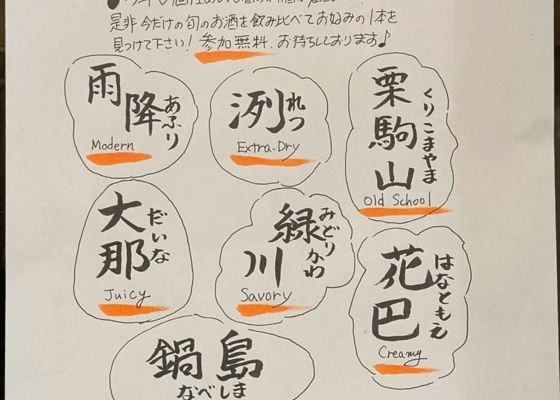 是非今だけの旬のお酒を飲み比べてお好みの1本を
見つけて下さい!参加無料、お待ちしております♪
雨降
あふり
Modern
洌
れつ
Extra-Dry
栗駒山
くりこまやま
Old School
大那
だいな
Juicy
緑川
みどりかわ
Savory
花巴
はなともえ
Creamy
鍋島
なべしま